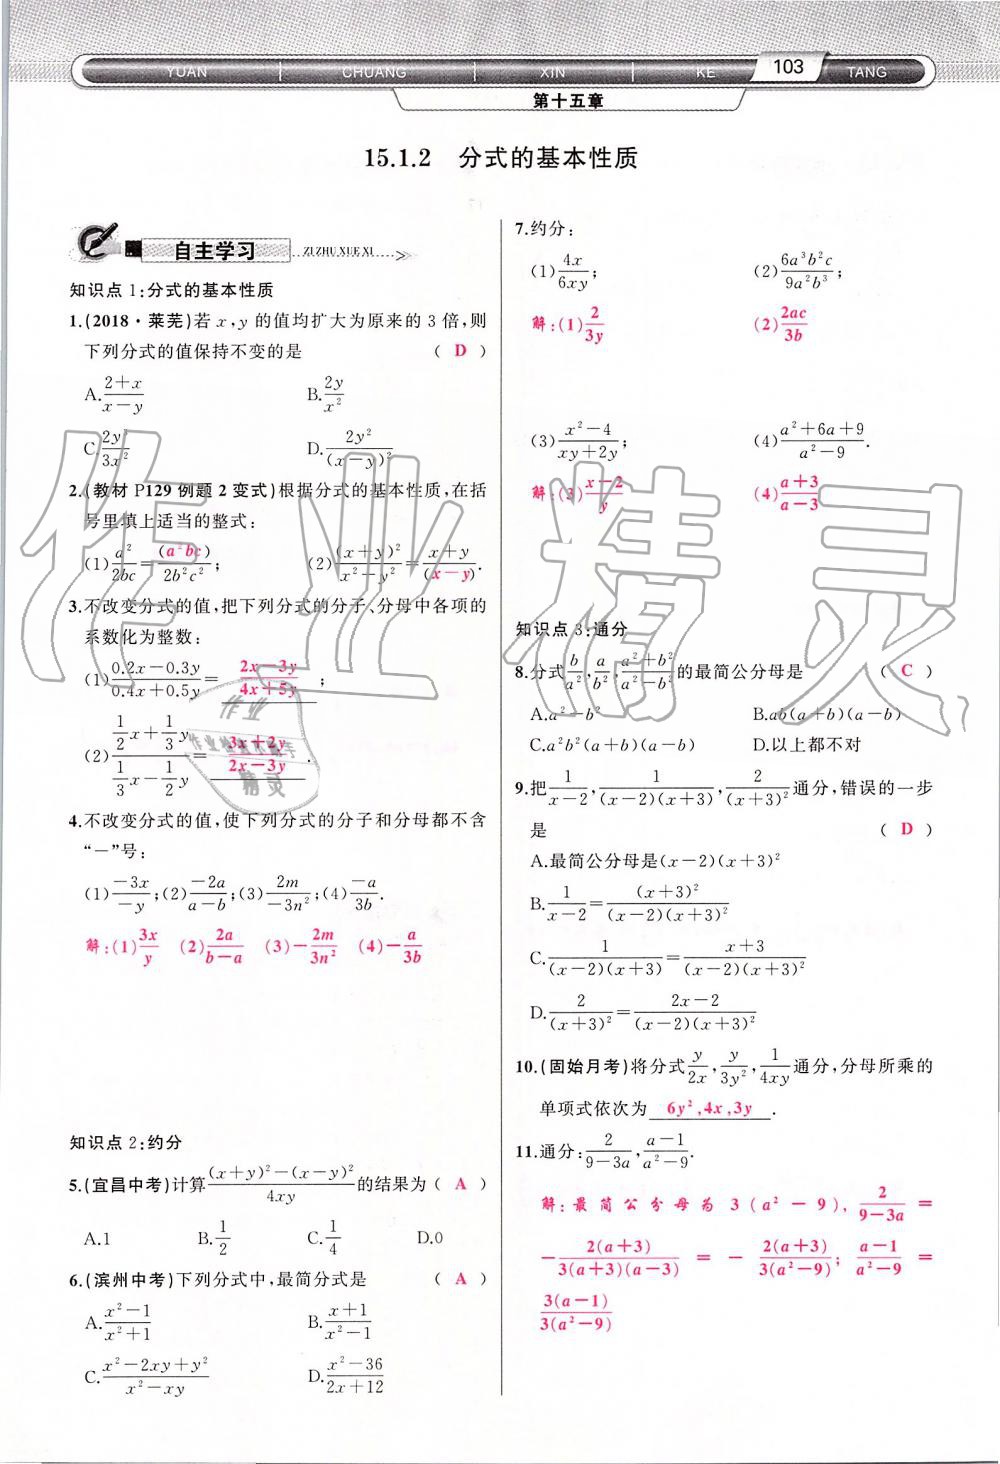 YUAN CHUANG XIN KE 103 TANG
第十五章
15.1.2 分式的基本性质
自主学习 ZI ZHU XUE XI
知识点 1:分式的基本性质
1.(2018·莱芜)若 x,y 的值均扩大为原来的 3 倍,则
下列分式的值保持不变的是 ( D )
A.(2+x)/(x-y) B.2y/x²
C.2y/3x² D.2y²/(x-y)²
2.(教材 P129 例题 2 变式)根据分式的基本性质,在括
号里填上适当的整式:
(1)a²/2bc=(a²bc)/2b²c²; (2)(x+y)²/(x²-y²)=(x+y)/(x-y).
3.不改变分式的值,把下列分式的分子、分母中各项的
系数化为整数:
(1)(0.2x-0.3y)/(0.4x+0.5y)=(2x-3y)/(4x+5y);
(2)(1/2x+1/3y)/(1/3x-1/2y)=(3x+2y)/(2x-3y).
4.不改变分式的值,使下列分式的分子和分母都不含
“-”号:
(1)-3x/-y;(2)-2a/(a-b);(3)2m/-3n²;(4)-a/3b.
解:(1)3x/y (2)2a/(b-a) (3)-2m/3n² (4)-a/3b
知识点 2:约分
5.(宜昌中考)计算((x+y)²-(x-y)²)/4xy的结果为( A )
A.1 B.1/2 C.1/4 D.0
6.(滨州中考)下列分式中,最简分式是 ( A )
A.(x²-1)/(x²+1) B.(x+1)/(x²-1)
C.(x²-2xy+y²)/(x²-xy) D.(x²-36)/(2x+12)
7.约分:
(1)4x/6xy; (2)6a³b²c/9a²b³;
解:(1)2/3y (2)2ac/3b
(3)(x²-4)/(xy+2y); (4)(a²+6a+9)/(a²-9).
解:(3)(x-2)/y (4)(a+3)/(a-3)
知识点 3:通分
8.分式b/a²,a/b²,(a²+b²)/(a²-b²)的最简公分母是 ( C )
A.a²-b² B.ab(a+b)(a-b)
C.a²b²(a+b)(a-b) D.以上都不对
9.把1/(x-2),1/((x-2)(x+3)),2/(x+3)²通分,错误的一步
是 ( D )
A.最简公分母是(x-2)(x+3)²
B.1/(x-2)=(x+3)²/((x-2)(x+3)²)
C.1/((x-2)(x+3))=(x+3)/((x-2)(x+3)²)
D.2/(x+3)²=(2x-2)/((x-2)(x+3)²)
10.(固始月考)将分式y/2x,y/3y²,1/4xy通分,分母所乘的
单项式依次为 6y²,4x,3y .
11.通分:2/(9-3a),(a-1)/(a²-9).
解:最简公分母为 3(a²-9),2/(9-3a)=
-2(a+3)/(3(a+3)(a-3))=-2(a+3)/(3(a²-9));(a-1)/(a²-9)=
3(a-1)/(3(a²-9))
作业精灵
作业
作业检查小帮手
精灵